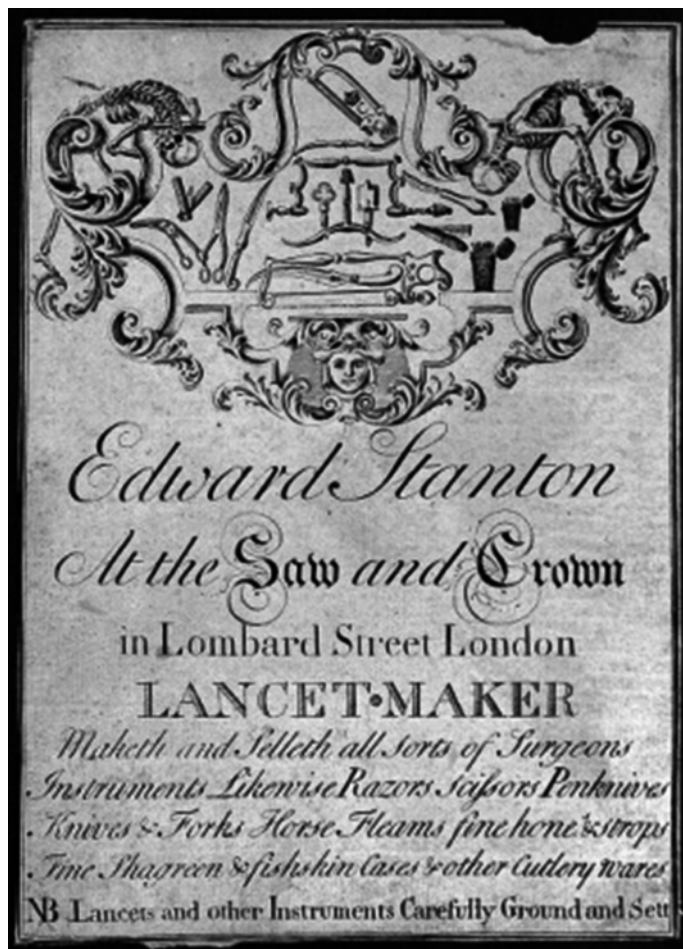 Edward Stanton
At the Saw and Crown
in Lombard Street London
LANCET•MAKER
Maketh and Selleth all sorts of Surgeons
Instruments Likewise Razors Scissors Penknives
Knives & Forks Horse Fleams fine hone's & strops
Fine Shagreen & fishskin Cases & other Cutlery wares
NB Lancets and other Instruments Carefully Ground and Sett